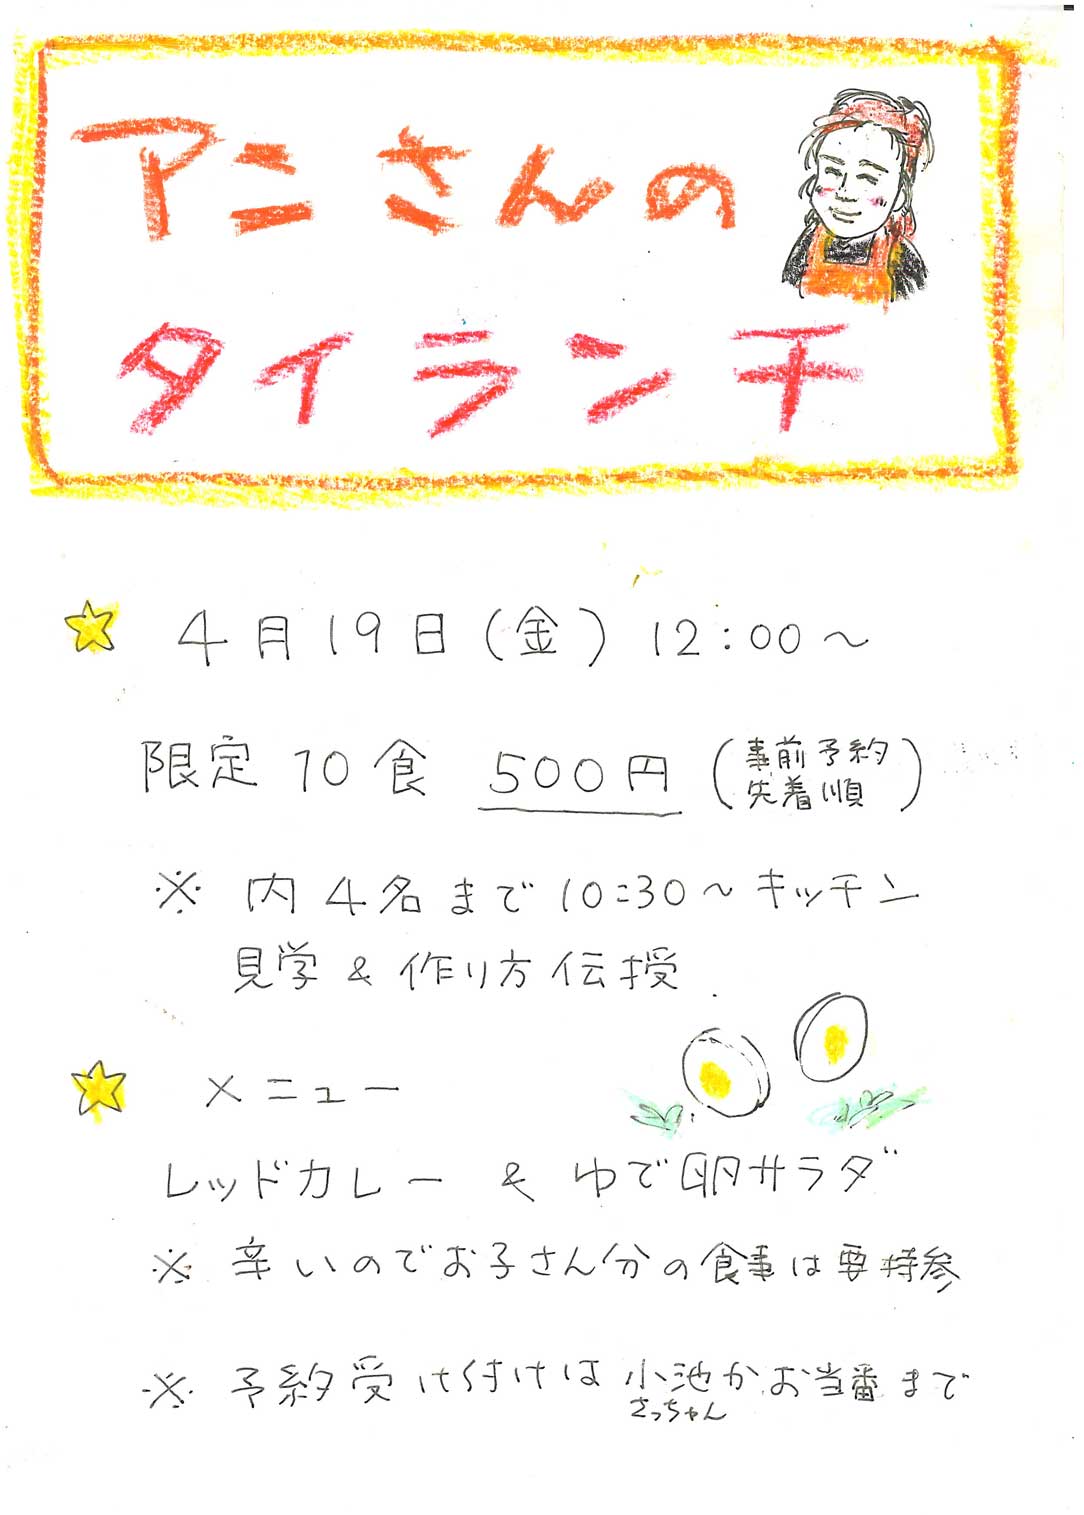 アニさんの
タイランチ
4月19日(金) 12:00〜
限定 10食 500円 (事前予約
先着順)
※ 内4名まで10:30〜キッチン
見学 & 作り方伝授
メニュー
レッドカレー & ゆで卵サラダ
※ 辛いのでお子さん分の食事は要持参
※ 予約受け付けは小池かお当番まで
さっちゃん